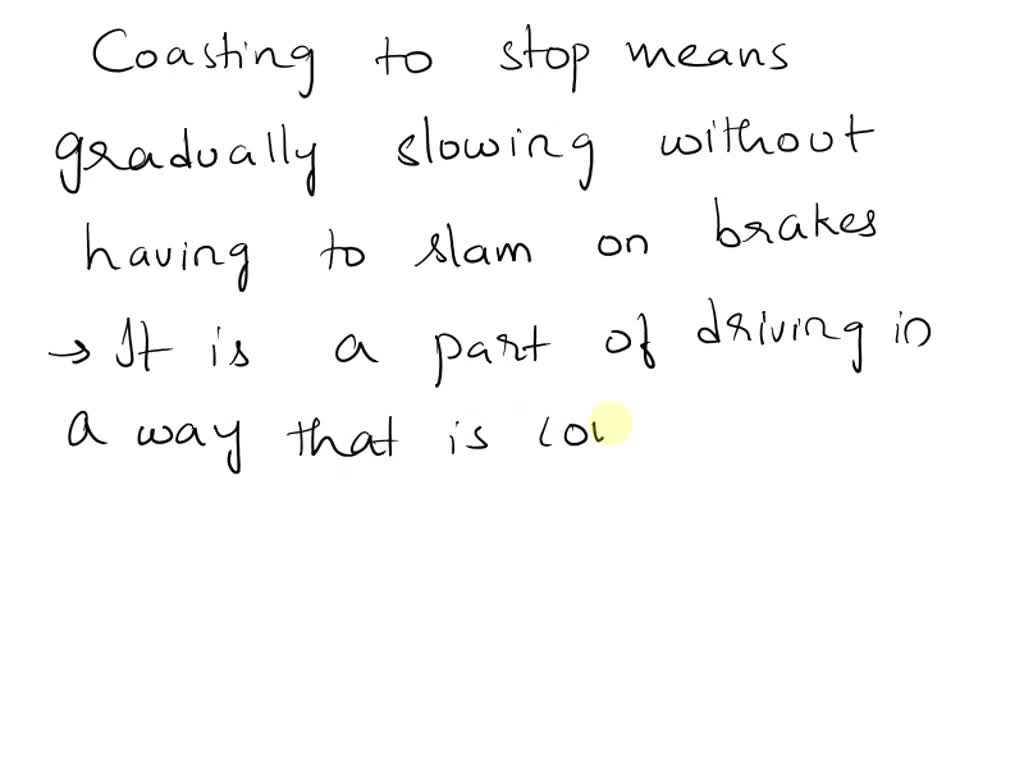 Coasting to stop means
gradually slowing without
having to slam on brakes
→ It is a part of driving in
a way that is cou